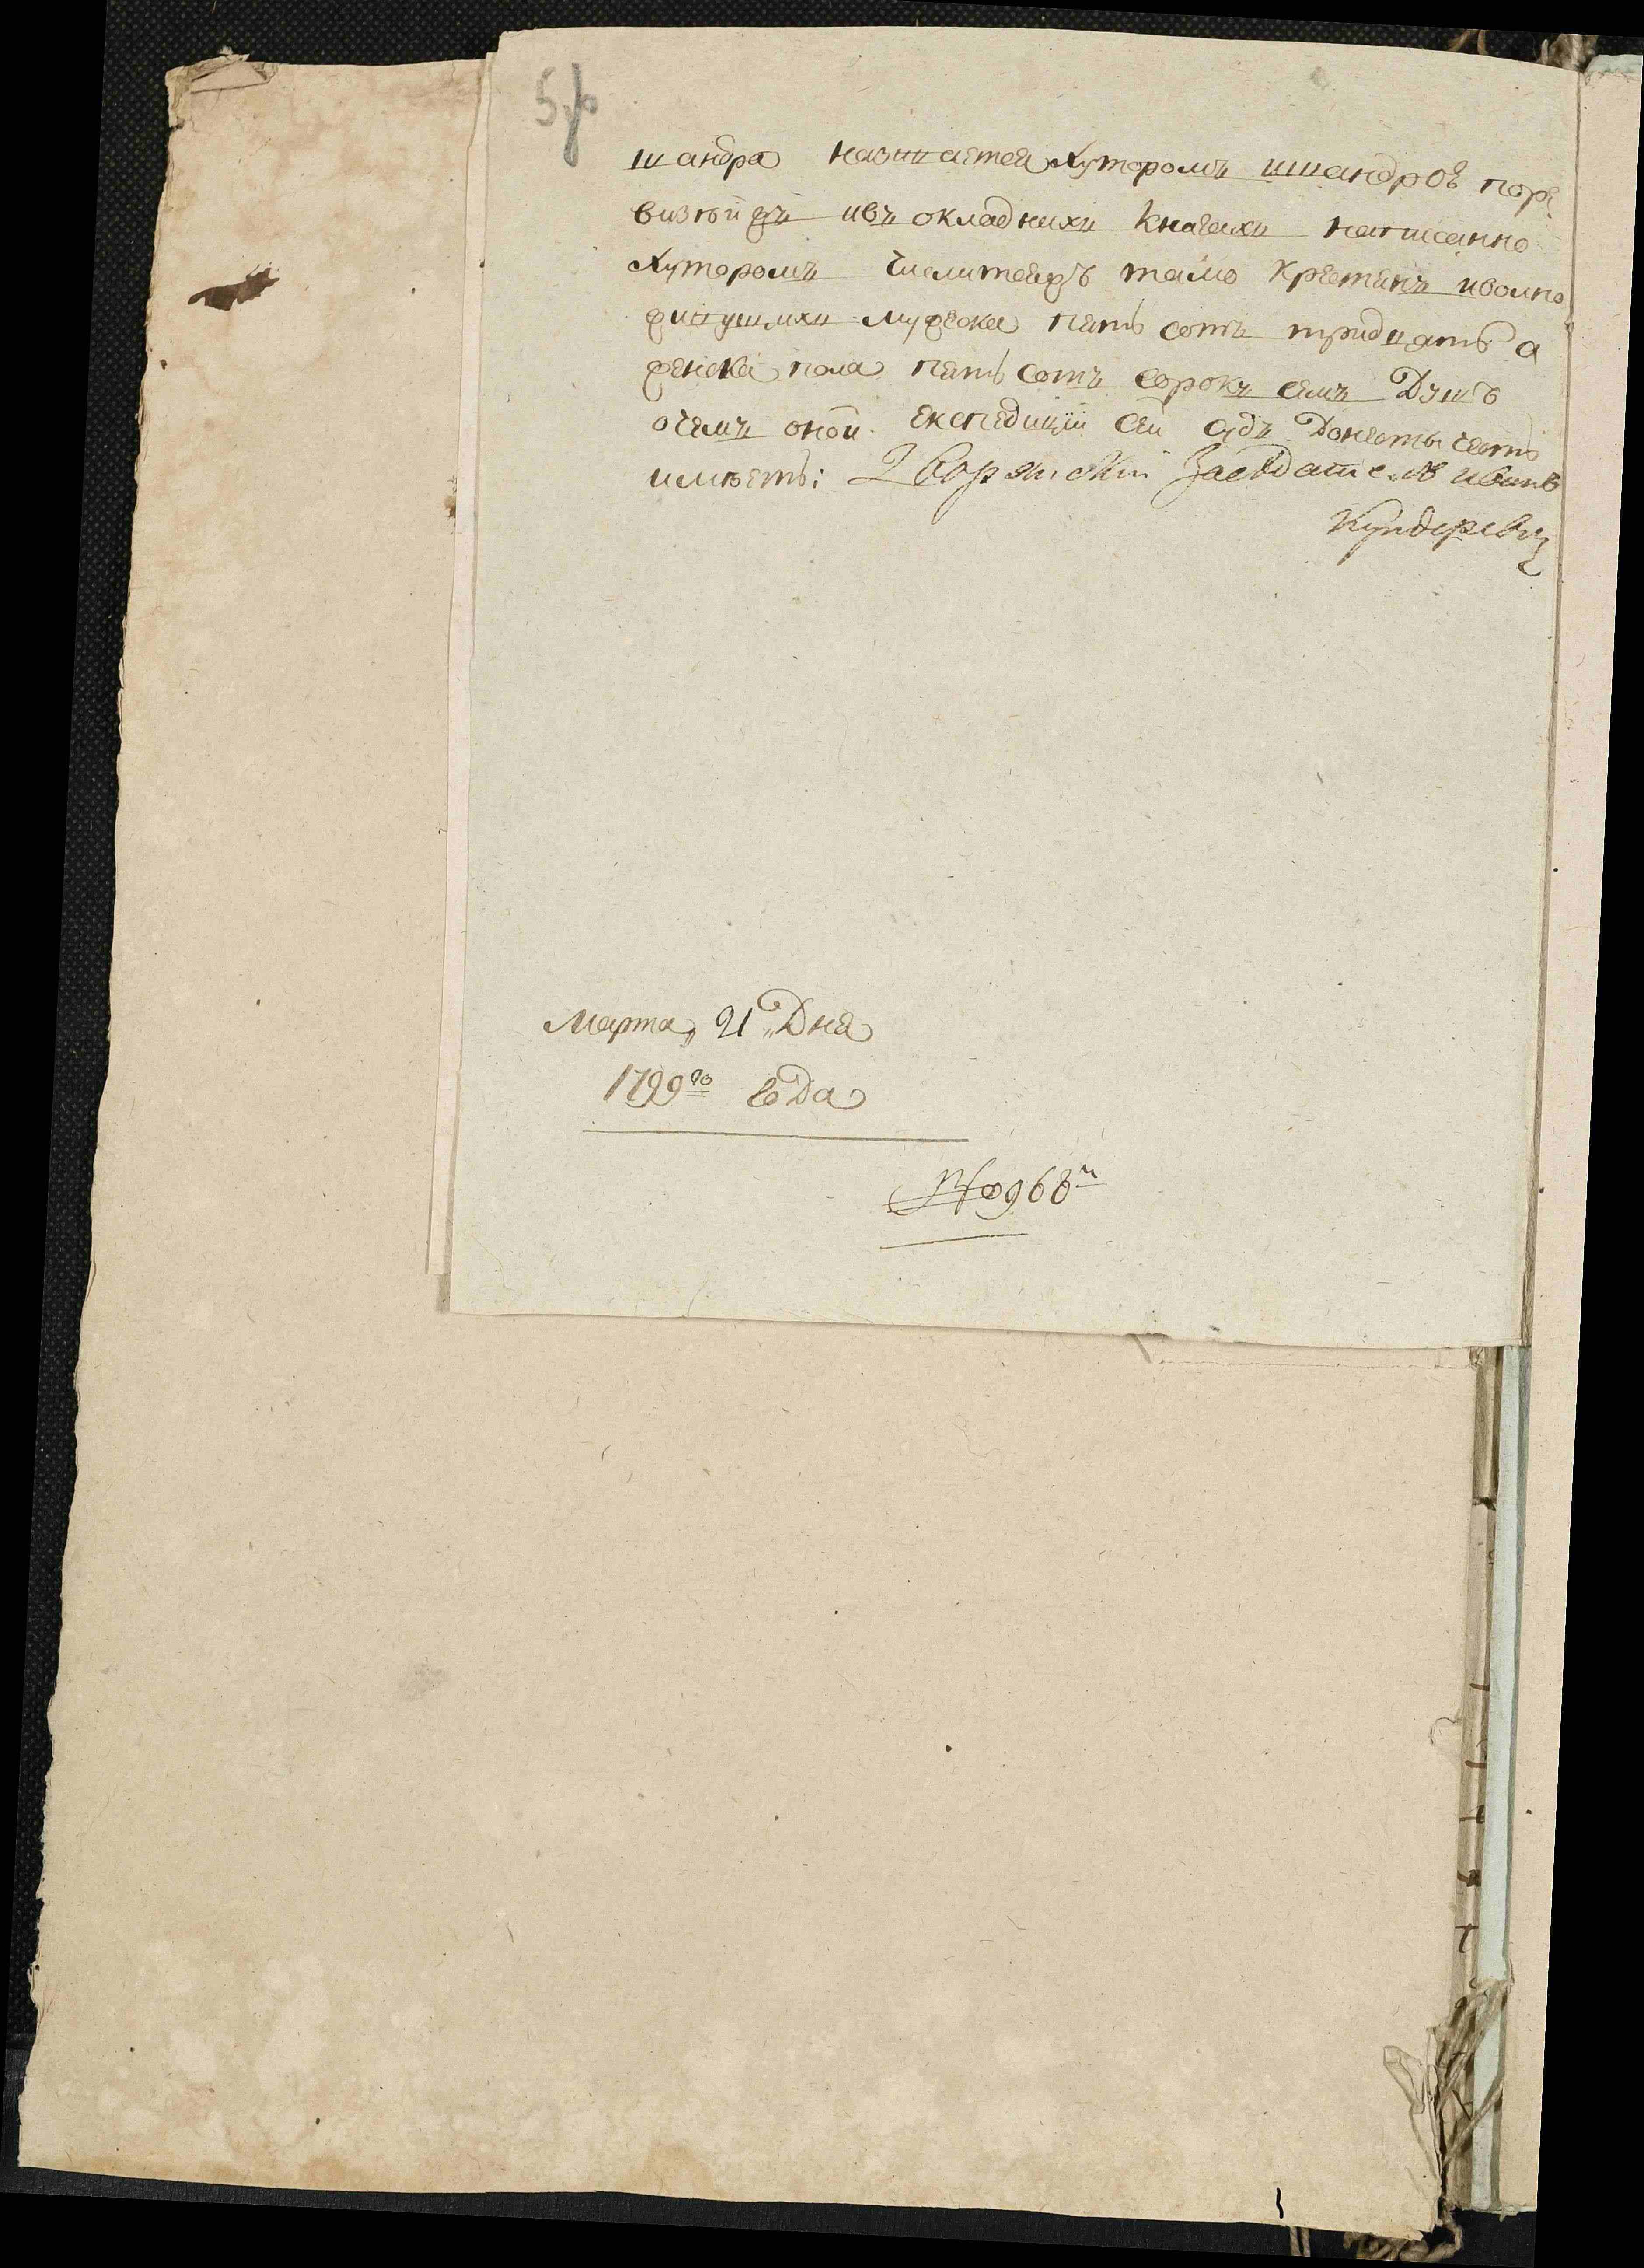 шандра называется Хуторомъ шшандров поре
визыи жъ ивъ окладнихъ Книгахъ написанно
Хуторомъ числитсяжъ тамо крестянъ иволно
живущихъ мужеска пять сотъ тридцять а
женска пола пять сотъ сорокъ семъ Душъ
очемъ оной експедицїи сей судъ Донесть честь
имѣетъ: Дворянскїй Засѣдатель Иванъ
Марта, 21 Дня
1799го года
№ 968м